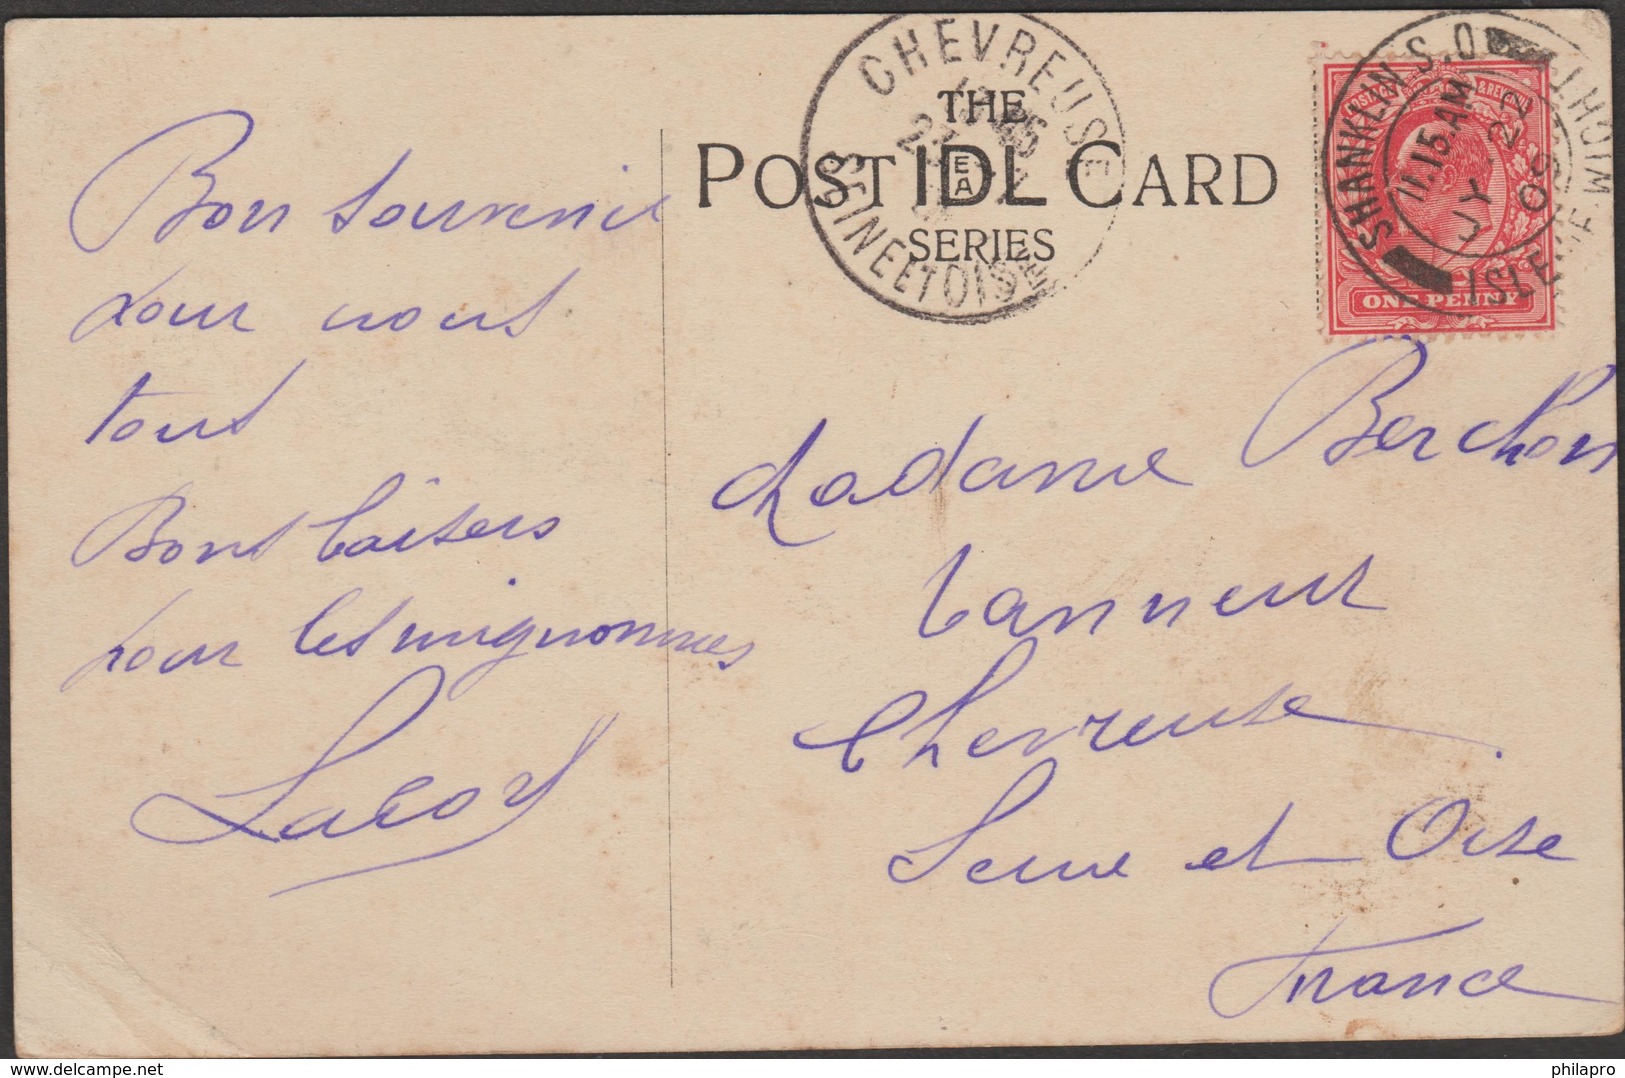 Bon souvenir
pour vous
tous
Bons baisers
pour les mignonnes
THE
POST IDEAL CARD
SERIES
CHEVREUSE
SEINE ET OISE
SHANKLIN S.O
11.15 AM
JY 22
ISLE OF WIGHT
POSTAGE & REVENUE
ONE PENNY
Madame Berchon
Tanneur
Chevreuse
Seine et Oise
France
delcampe.net
philapro